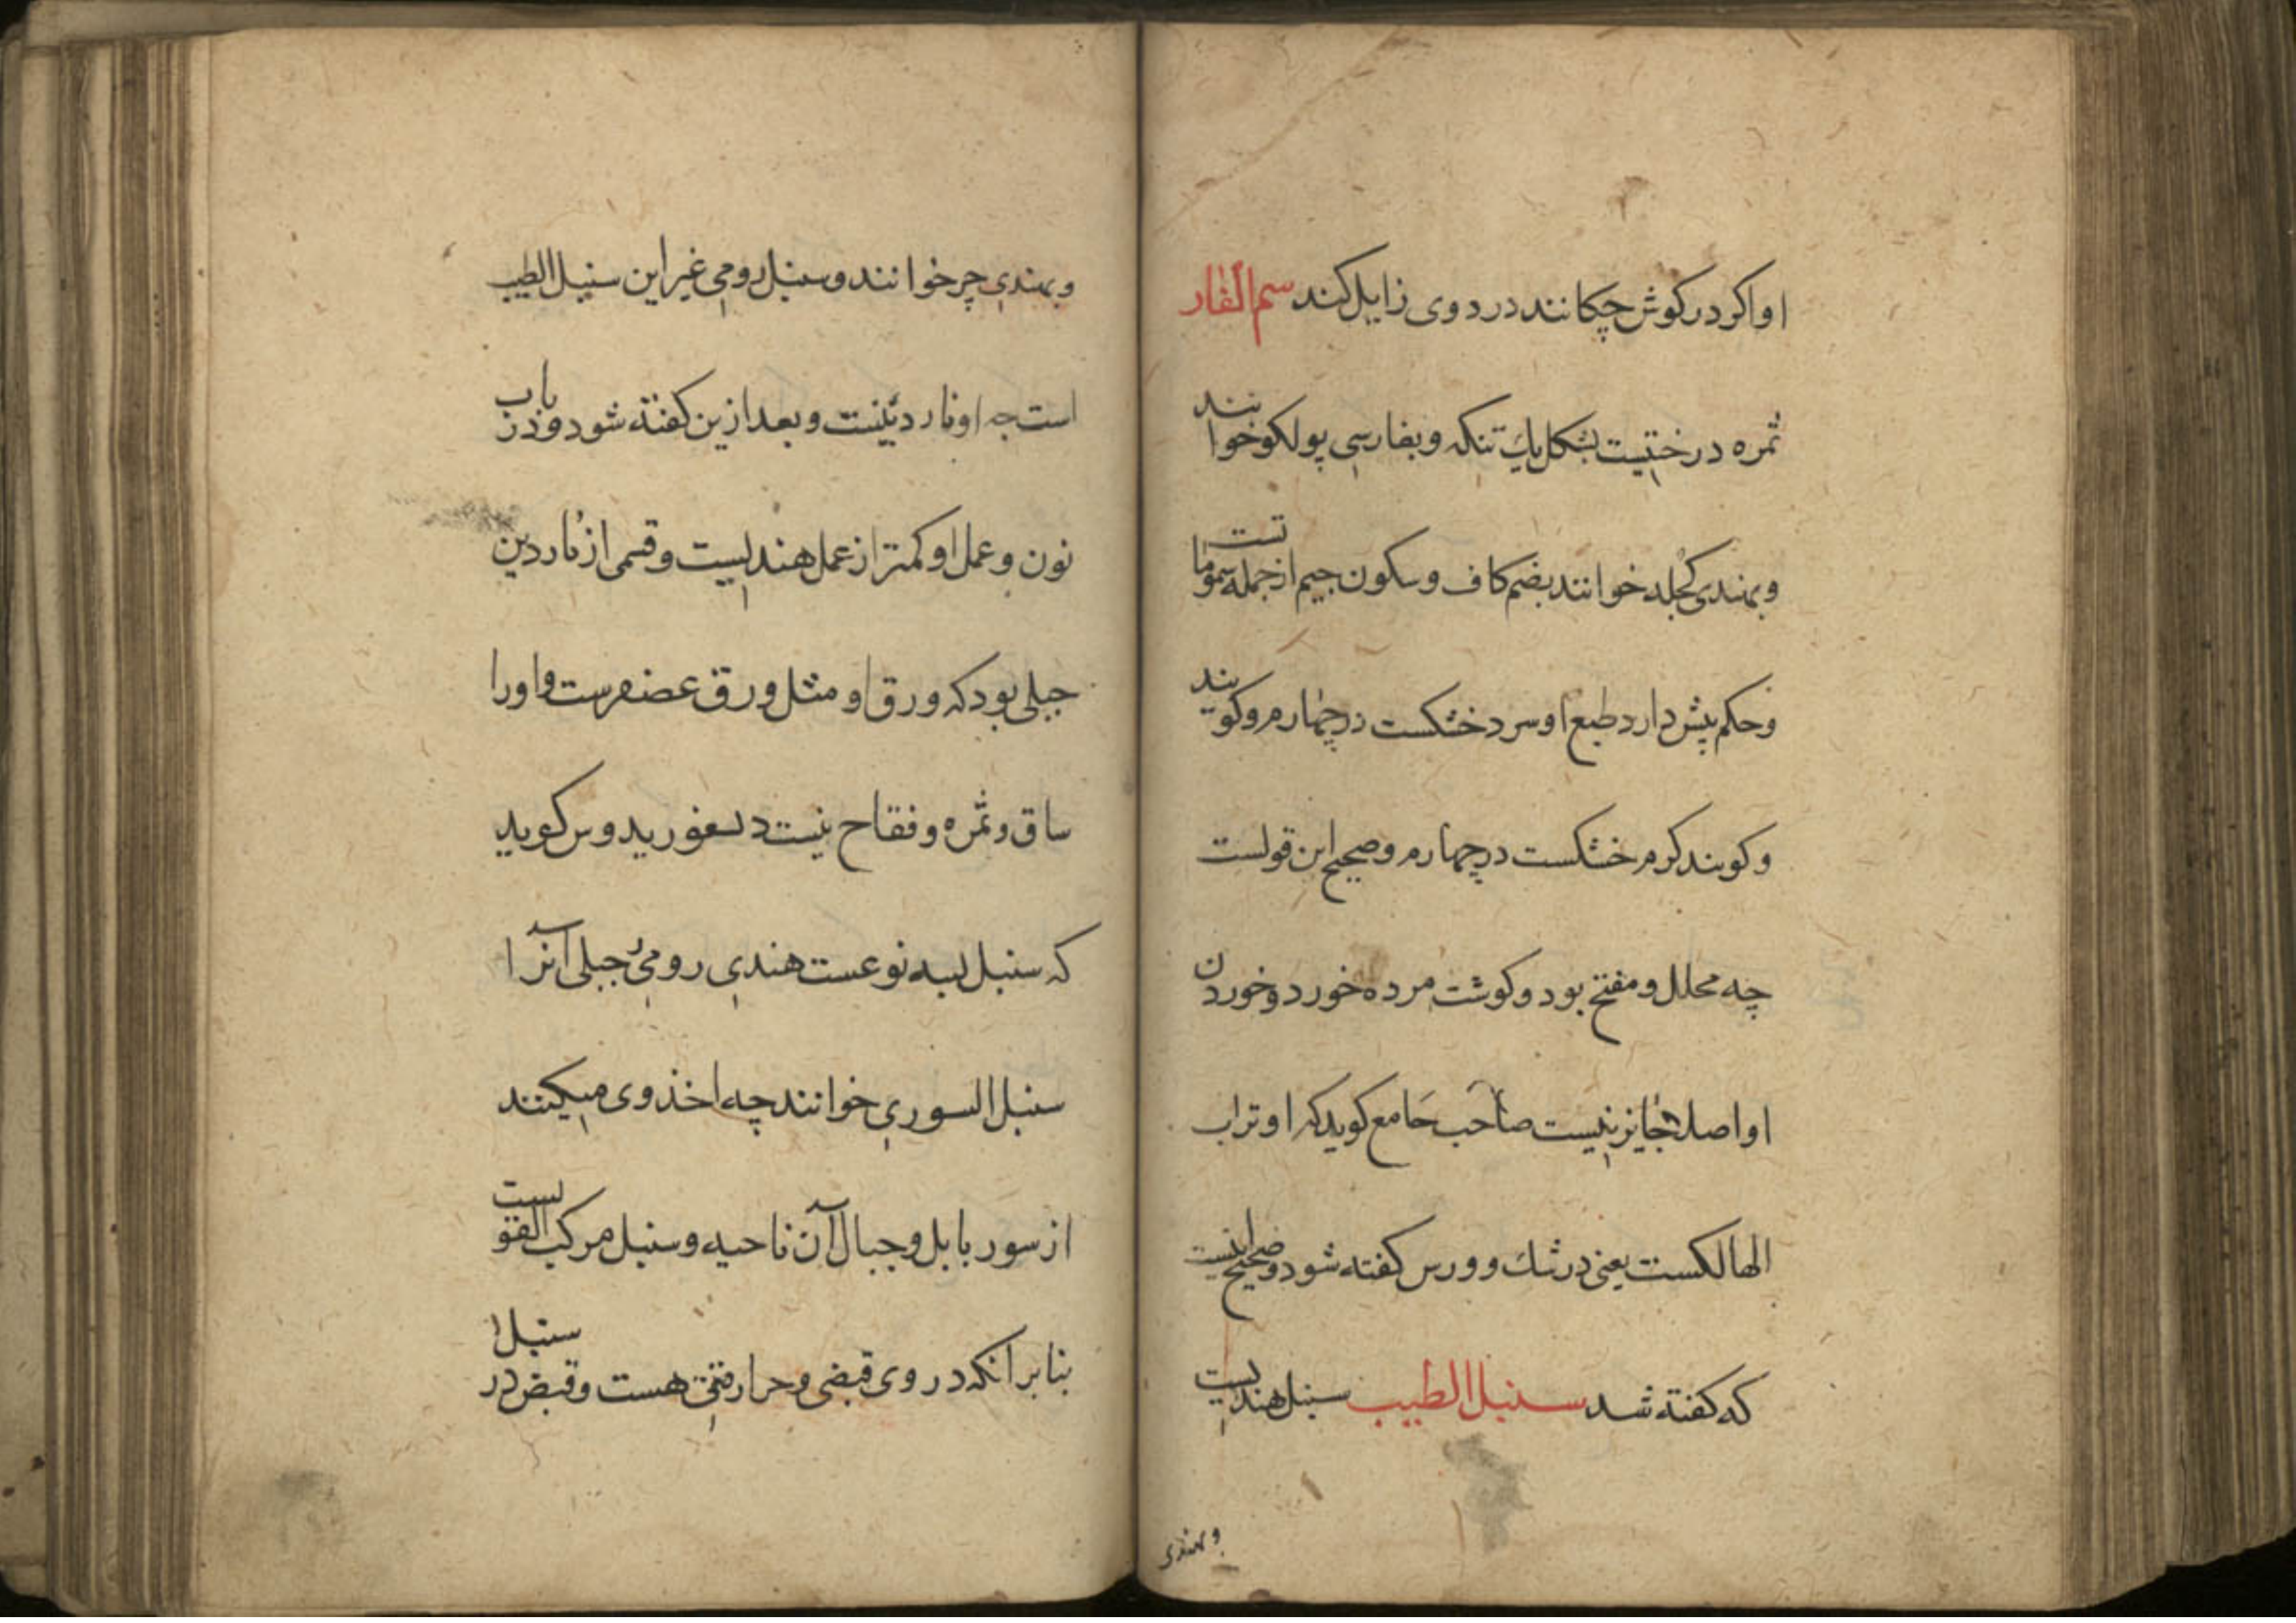 او اکر در کوش چکانند درد وی زایل کند سم الفار
ثمره درختیست بشکل یك تنکه و بفارسی پولکو خوانند
و بهندی کجله خوانند بضم کاف و سکون جیم از جمله سموماتست
و حکم پیش دارد طبع او سرد خشکست در چهارم و کویند
و کویند کرم خشکست در چهارم و صحیح این قولست
چه محلل و مفتح بود و کوشت مرده خورد و خوردن
او اصلا جایز نیست صاحب جامع کوید که او تراب
الهالکست یعنی در شك و ورس کفته شود و صحیح اینست
که کفته شد سنبل الطیب سنبل هندیست
و بهندی
و بهندی چر خوانند و سنبل رومی غیر این سنبل الطیب
است چه او ناردینست و بعد ازین کفته شود در باب
نون و عمل او کمتر از عمل هندیست و قسمی از ناردین
جبلی بود که ورق او مثل ورق عصفرست و او را
ساق و ثمره و فقاح نیست کوید
که سنبل سه نوعست هندی رومی جبلی آنرا
سنبل السوری خوانند چه اخذ وی میکنند
از سور بابل و جبال آن ناحیه و سنبل مرکب القوتست
بنابر آنکه در وی قبضی و حرارتی هست و قبض در سنبل